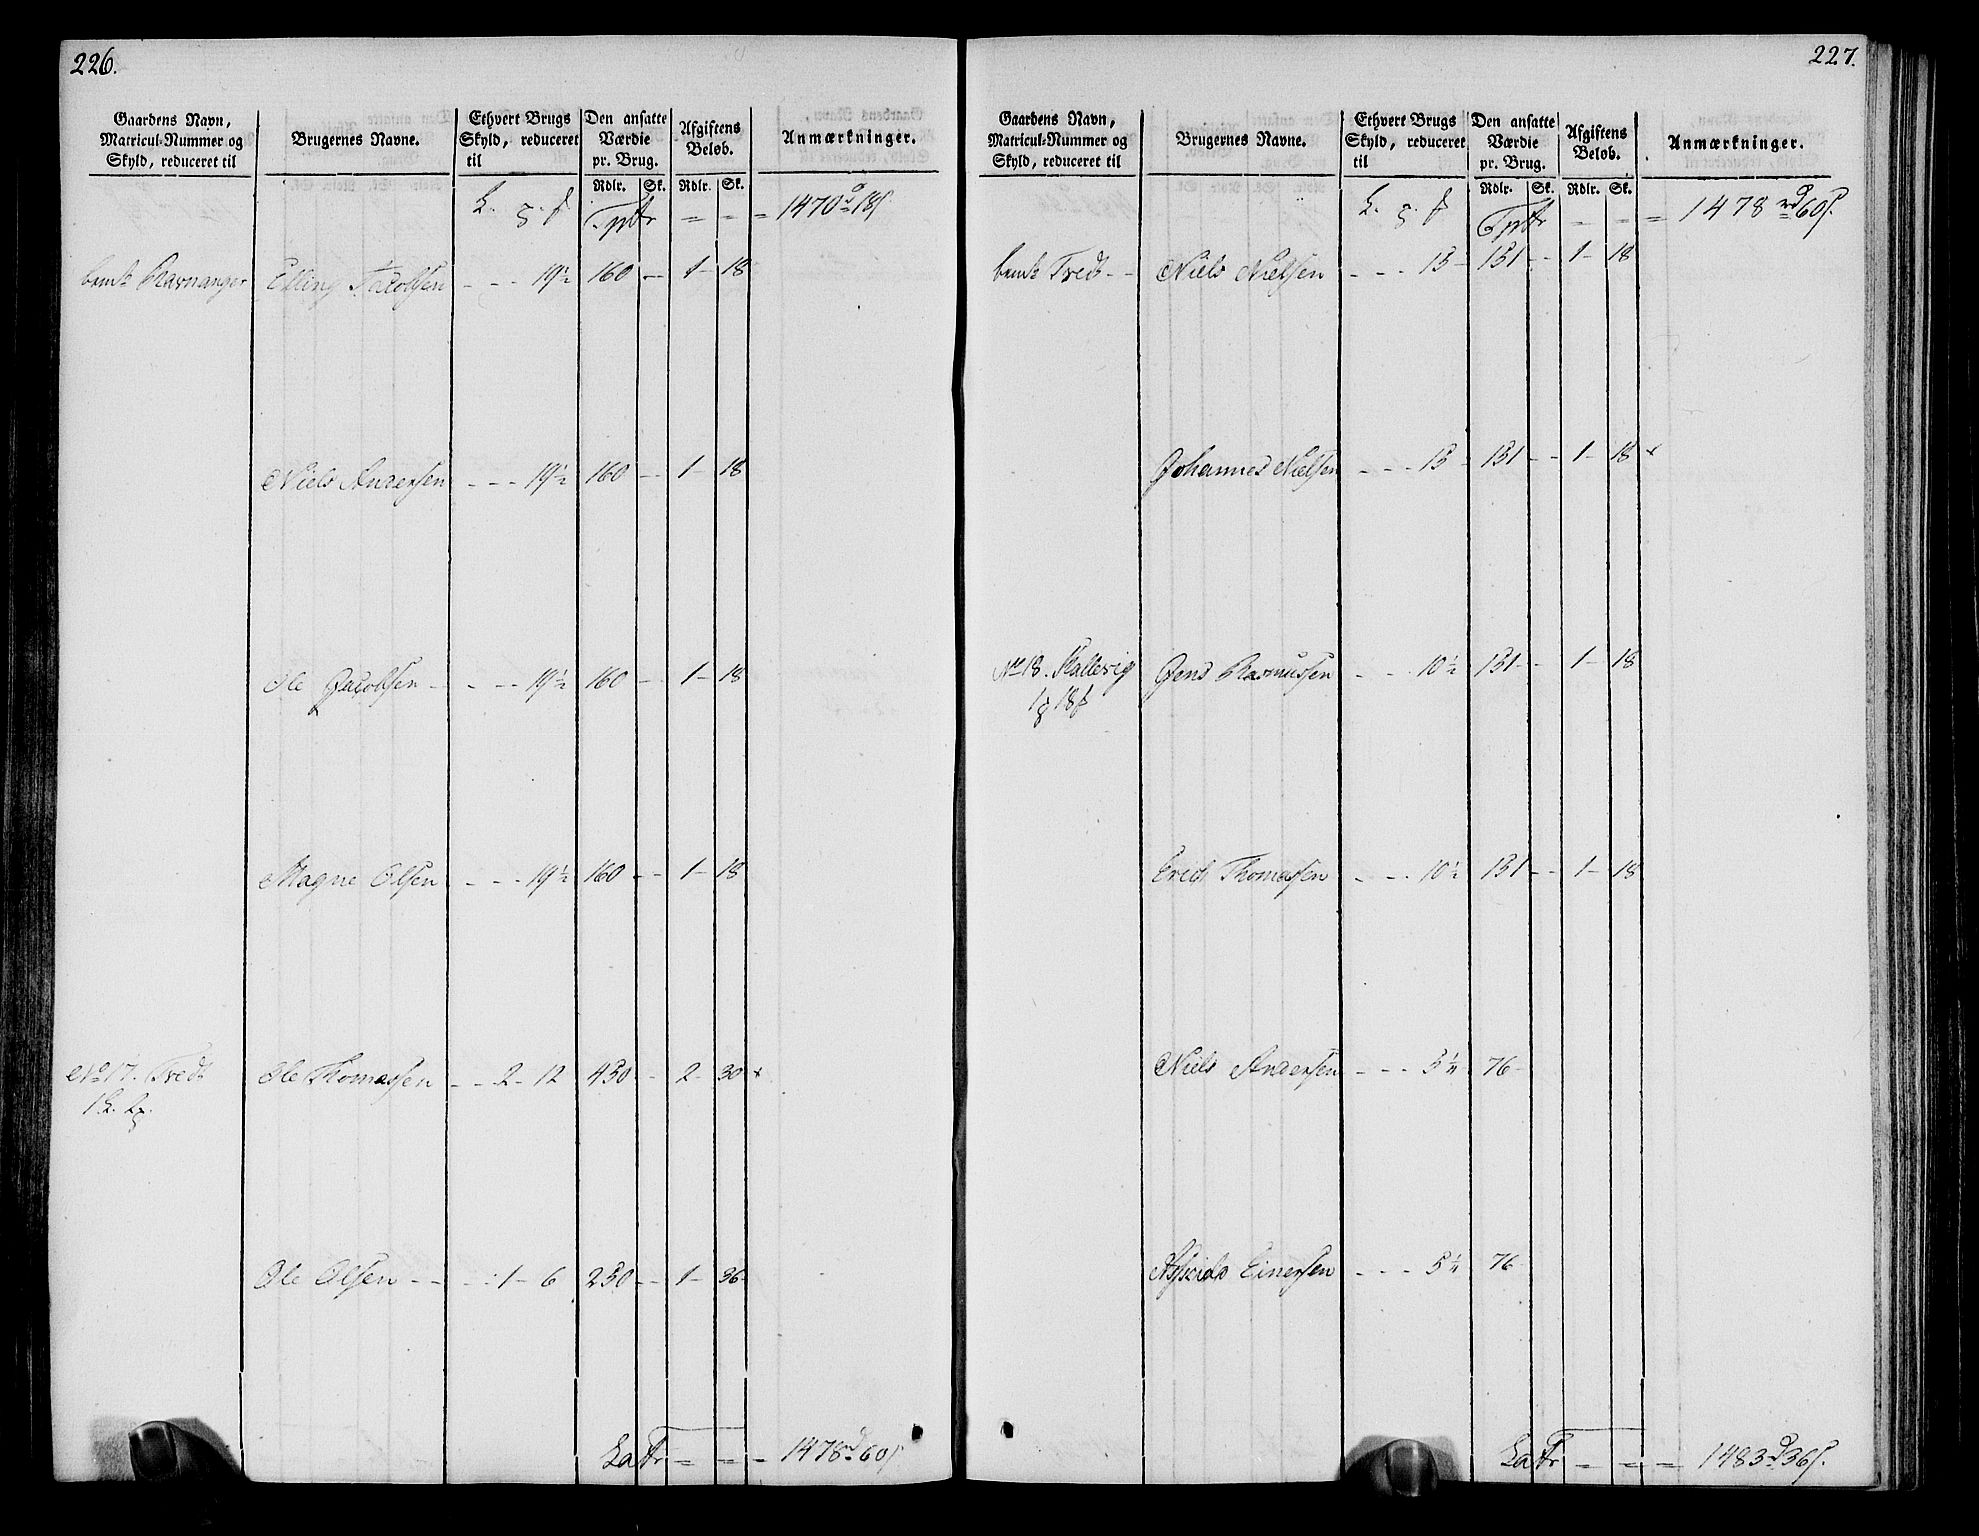 226.
Gaardens Navn, Matricul-Nummer og Skyld, reduceret til
Brugernes Navne.
Ethvert Brugs Skyld, reduceret til
Den ansatte Værdie pr. Brug.
Afgiftens Beløb.
Anmærkninger.
Rdlr. Sk. Rdlr. Sk.
Tptr = = = 1470 d 18 s
bemte Ravnanger Elling Jacobsen - - - 19½ 160 - - 1 - 18
Niels Andersen - - - 19½ 160 - - 1 - 18
Ole Jacobsen - - - - 19½ 160 - - 1 - 18
Magne Olsen - - - 19½ 160 - - 1 - 18
No 17. Tvedt Ole Thomassen - - 2 - 12 450 - - 2 - 30 x
Ole Olsen - - - - 1 - 6 250 - - 1 - 36
Latr = = = 1478 rd 60 s
227.
Gaardens Navn, Matricul-Nummer og Skyld, reduceret til
Brugernes Navne.
Ethvert Brugs Skyld, reduceret til
Den ansatte Værdie pr. Brug.
Afgiftens Beløb.
Anmærkninger.
Rdlr. Sk. Rdlr. Sk.
Tptr = = = 1478 rd 60 s.
bemte Tvedt - - Niels Nielsen - - - 15 - 151 - - 1 - 18
Johannes Nielsen - - - 15 - 151 - - 1 - 18 x
No 18. Hallevig Jens Rasmussen - - - 10½ 151 - - 1 - 18
Erich Thomassen - - - 10½ 151 - - 1 - 18
Niels Andersen - - - 5¼ 76 -
Einersen - - - 5¼ 76 -
Latr = = = 1483 d 36 s.